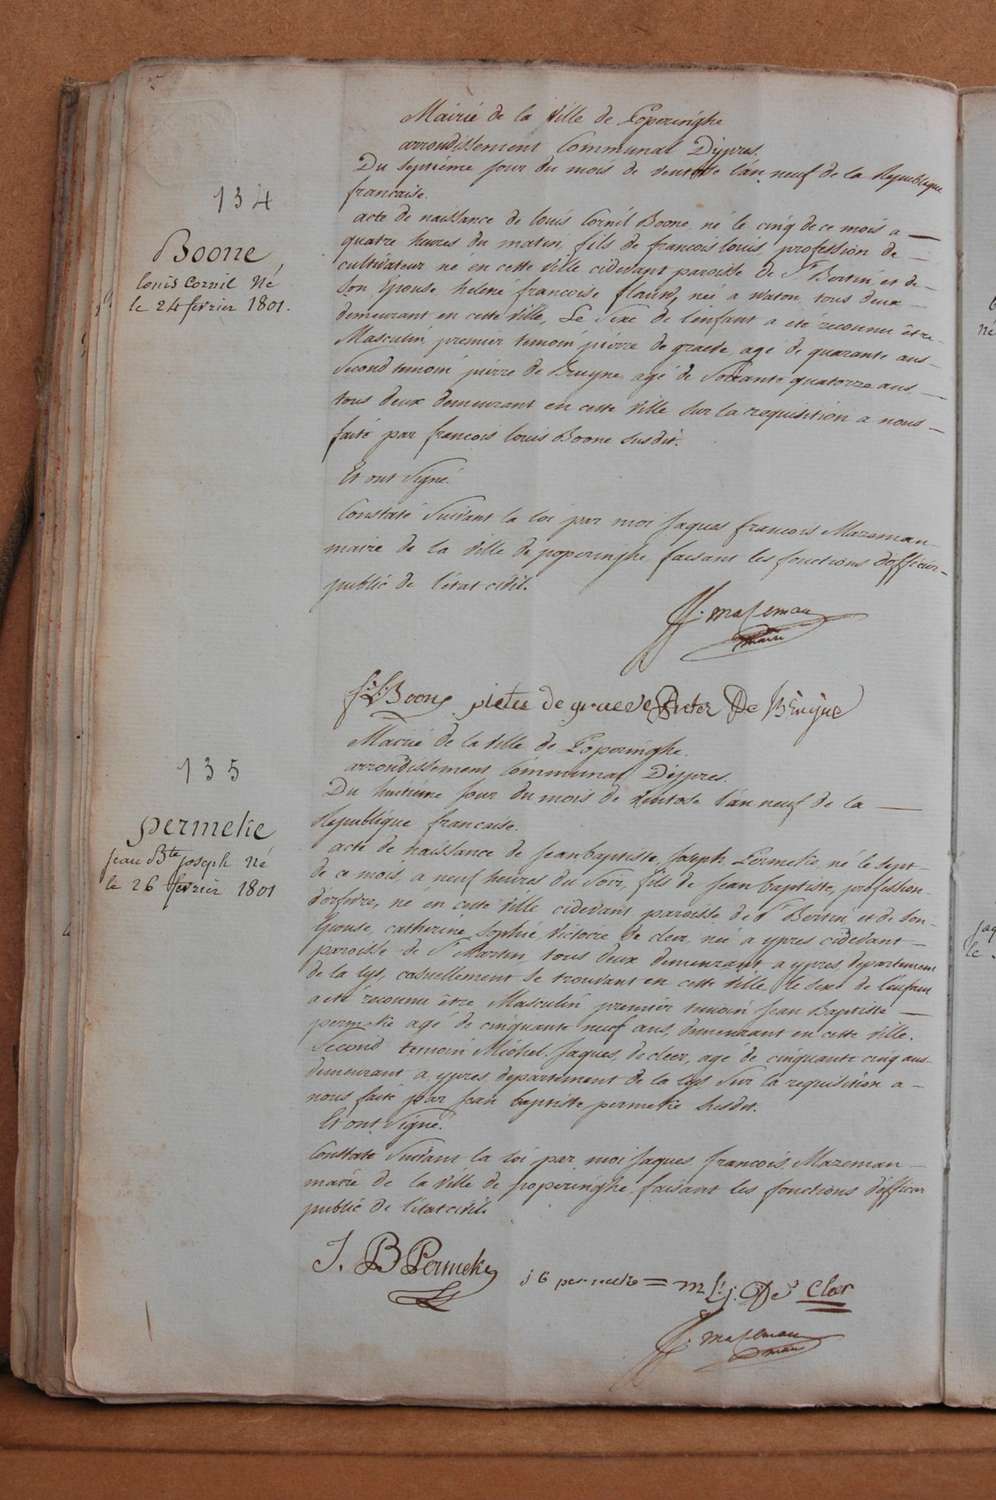 Mairie de la Ville de Poperinghe
arrondissement Communal D'ypres.
Du septieme jour du mois de ventose l'an neuf de la Republique
francaise.
134
Boone
louis Cornil Né
le 24 fevrier 1801.
acte de naissance de louis Cornil Boone né le cinq de ce mois a
quatre heures du matin, fils de francois louis profession de
cultivateur né en cette ville cidevant paroisse de St Bertin et de
son epouse helene francoise née a waton, tous deux
demeurant en cette ville, Le sexe de l'enfant a été reconnu être
Masculin premier temoin pierre de graeve agé de quarante ans
Second temoin pierre de Bruyne agé de Soixante quatorze ans
tous deux demeurant en cette ville sur la requisition a nous
faite par francois louis Boone susdit.
Et ont signé.
Constaté Suivant la loi par moi Jaques francois Mazeman
maire de la ville de poperinghe faisant les fonctions d'officier
public de l'etat civil.
JF. mazeman
maire
f: L: Boone pieter de graeve Pieter De Bruÿne
Mairie de la ville de Poperinghe
arrondissement Communal D'ypres.
Du huitieme jour du mois de Ventose l'an neuf de la
Republique francaise.
135
permeke
jean Bte joseph Né
le 26 fevrier 1801
acte de naissance de jean baptiste, joseph Permeke, né le sept
de ce mois a neuf heures du soir, fils de jean baptiste, profession
d'orfevre, né en cette ville cidevant paroisse de St Bertin et de son
epouse, catherine, sophie, victoire de cleer, née a ypres cidevant
paroisse de St Martin, tous deux demeurant a ypres, departement
de la lys, casuellement se trouvant en cette ville, le sexe de l'enfant
a été reconnu être Masculin premier temoin Jean Baptiste
permeke agé de cinquante neuf ans, demeurant en cette ville.
Second temoin Michel Jaques de cleer, agé de cinquante cinq ans
demeurant a ypres departement de la lys Sur la requisition a
nous faite par jean baptiste permeke susdit.
Et ont signé.
Constaté Suivant la loi par moi Jaques francois Mazeman
maire de la ville de poperinghe faisant les fonctions d'officier
public de l'etat civil.
J. B Permeke j B permeke = m j: De Cleer
JF. mazeman
maire